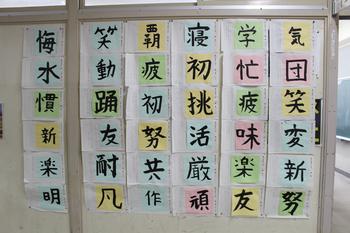 気
団
笑
変
新
努
学
忙
疲
味
楽
友
寝
初
挑
活
厳
頑
覇
疲
初
努
共
作
笑
動
踊
友
耐
凡
悔
水
慣
新
楽
明